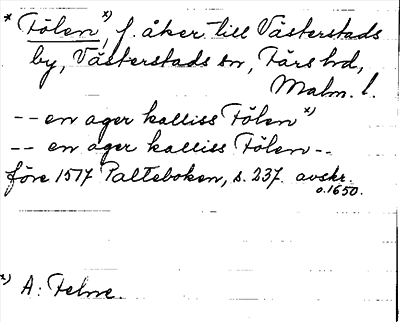 * Fölen x), f. åker till Västerstads
by, Västerstads sn, Färs hd,
Malm. l.
-- en ager kalliss Fölen x)
-- en ager kalliss Fölen --
före 1517 Palteboken, s. 237. avskr.
o. 1650.
x) A: Felne.